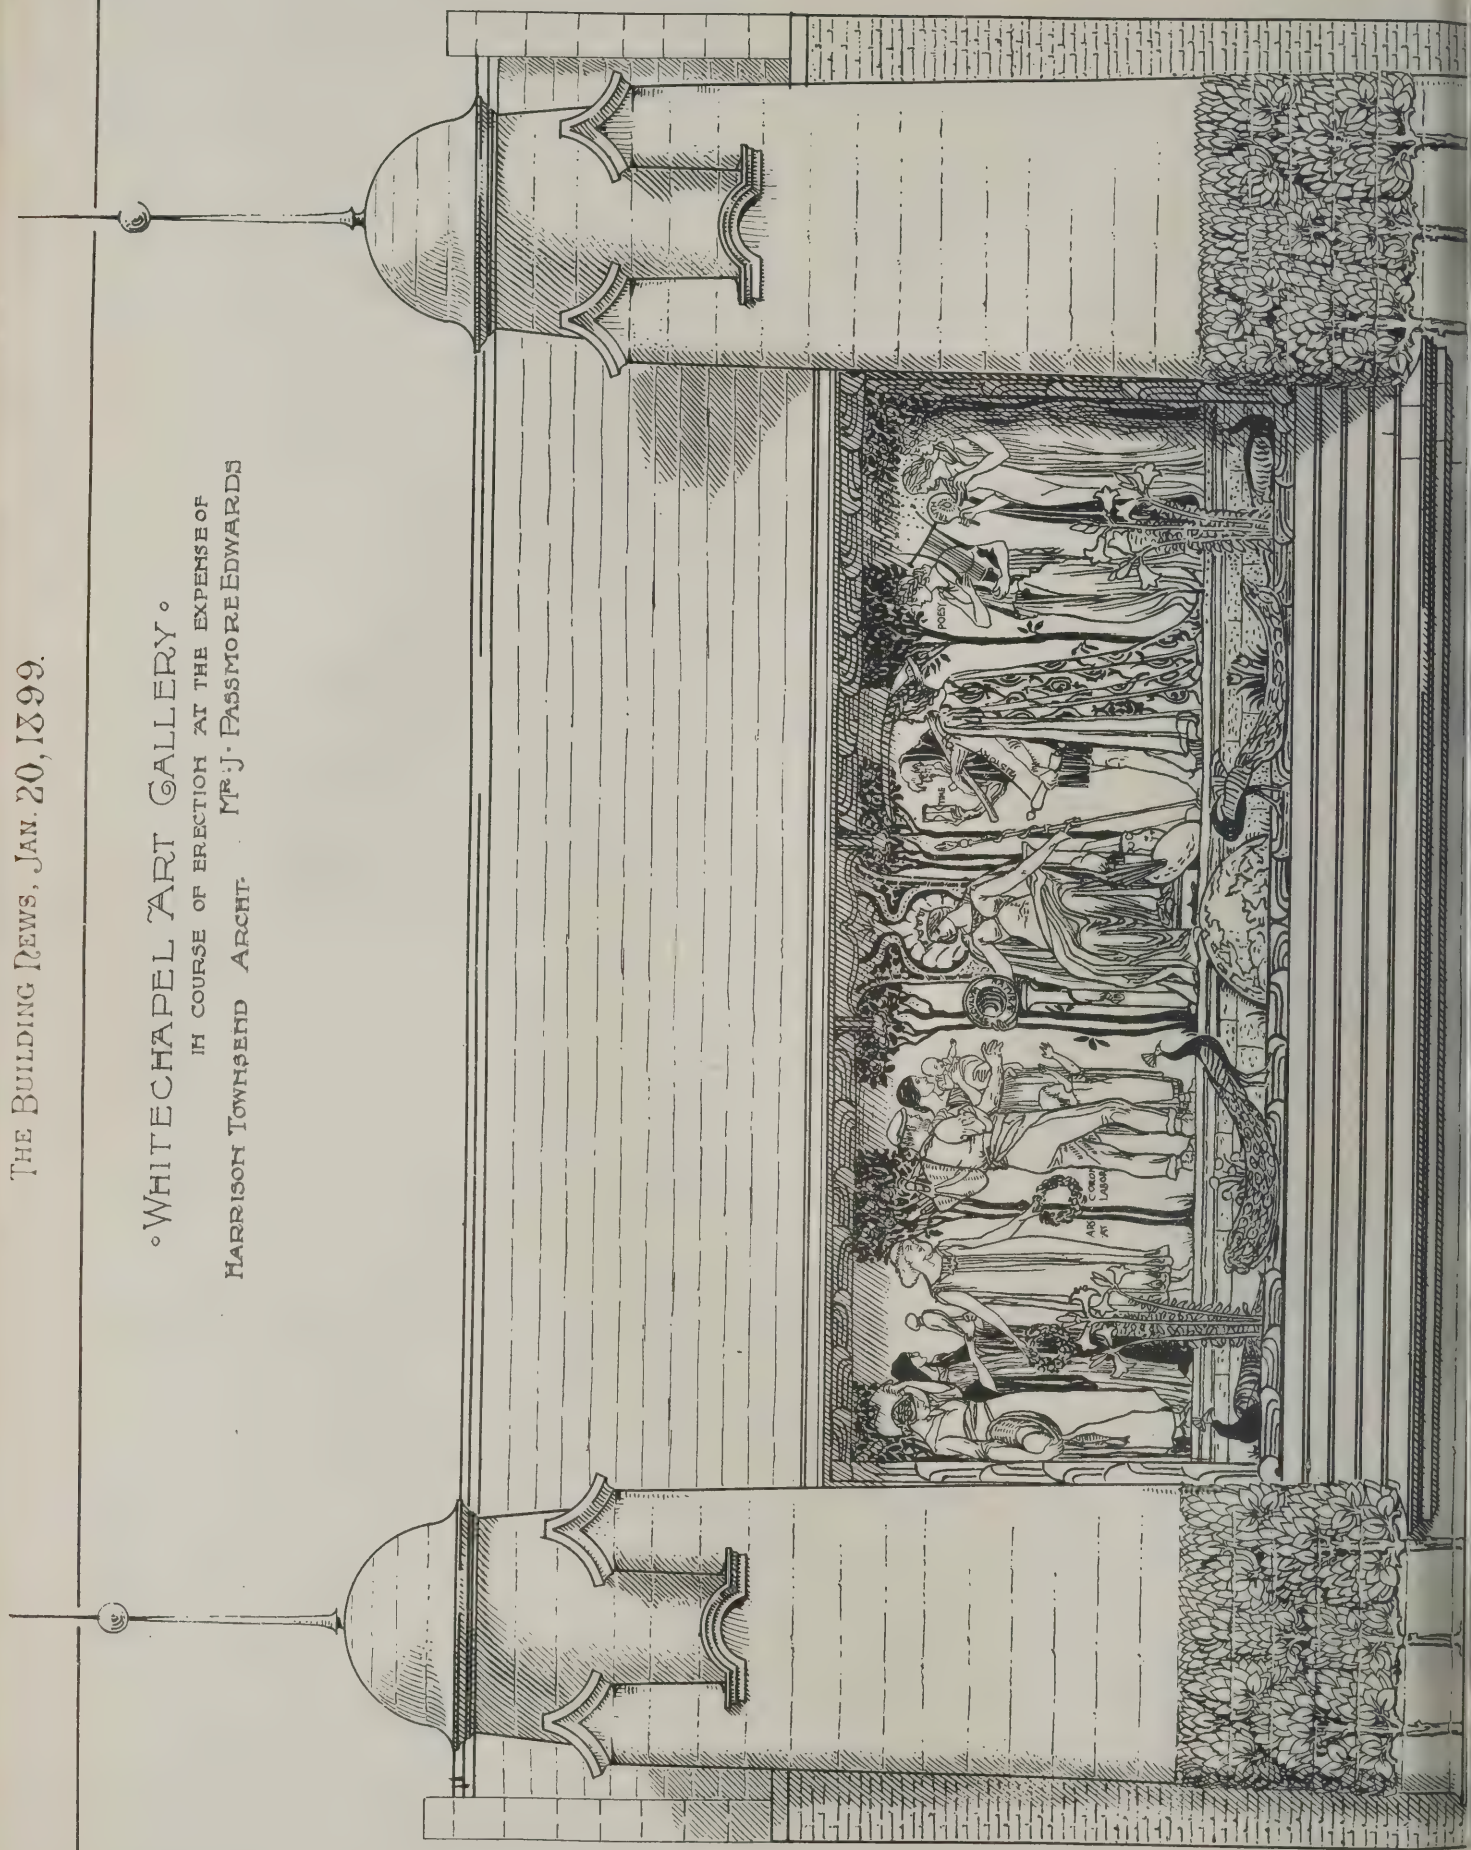 THE BUILDING NEWS, JAN. 20, 1899.
WHITECHAPEL ART GALLERY
IN COURSE OF ERECTION AT THE EXPENSE OF
HARRISON TOWNSEND ARCHT. MR. J. PASSMORE EDWARDS
ARS CORON
AT LABOR
TIME
POESY